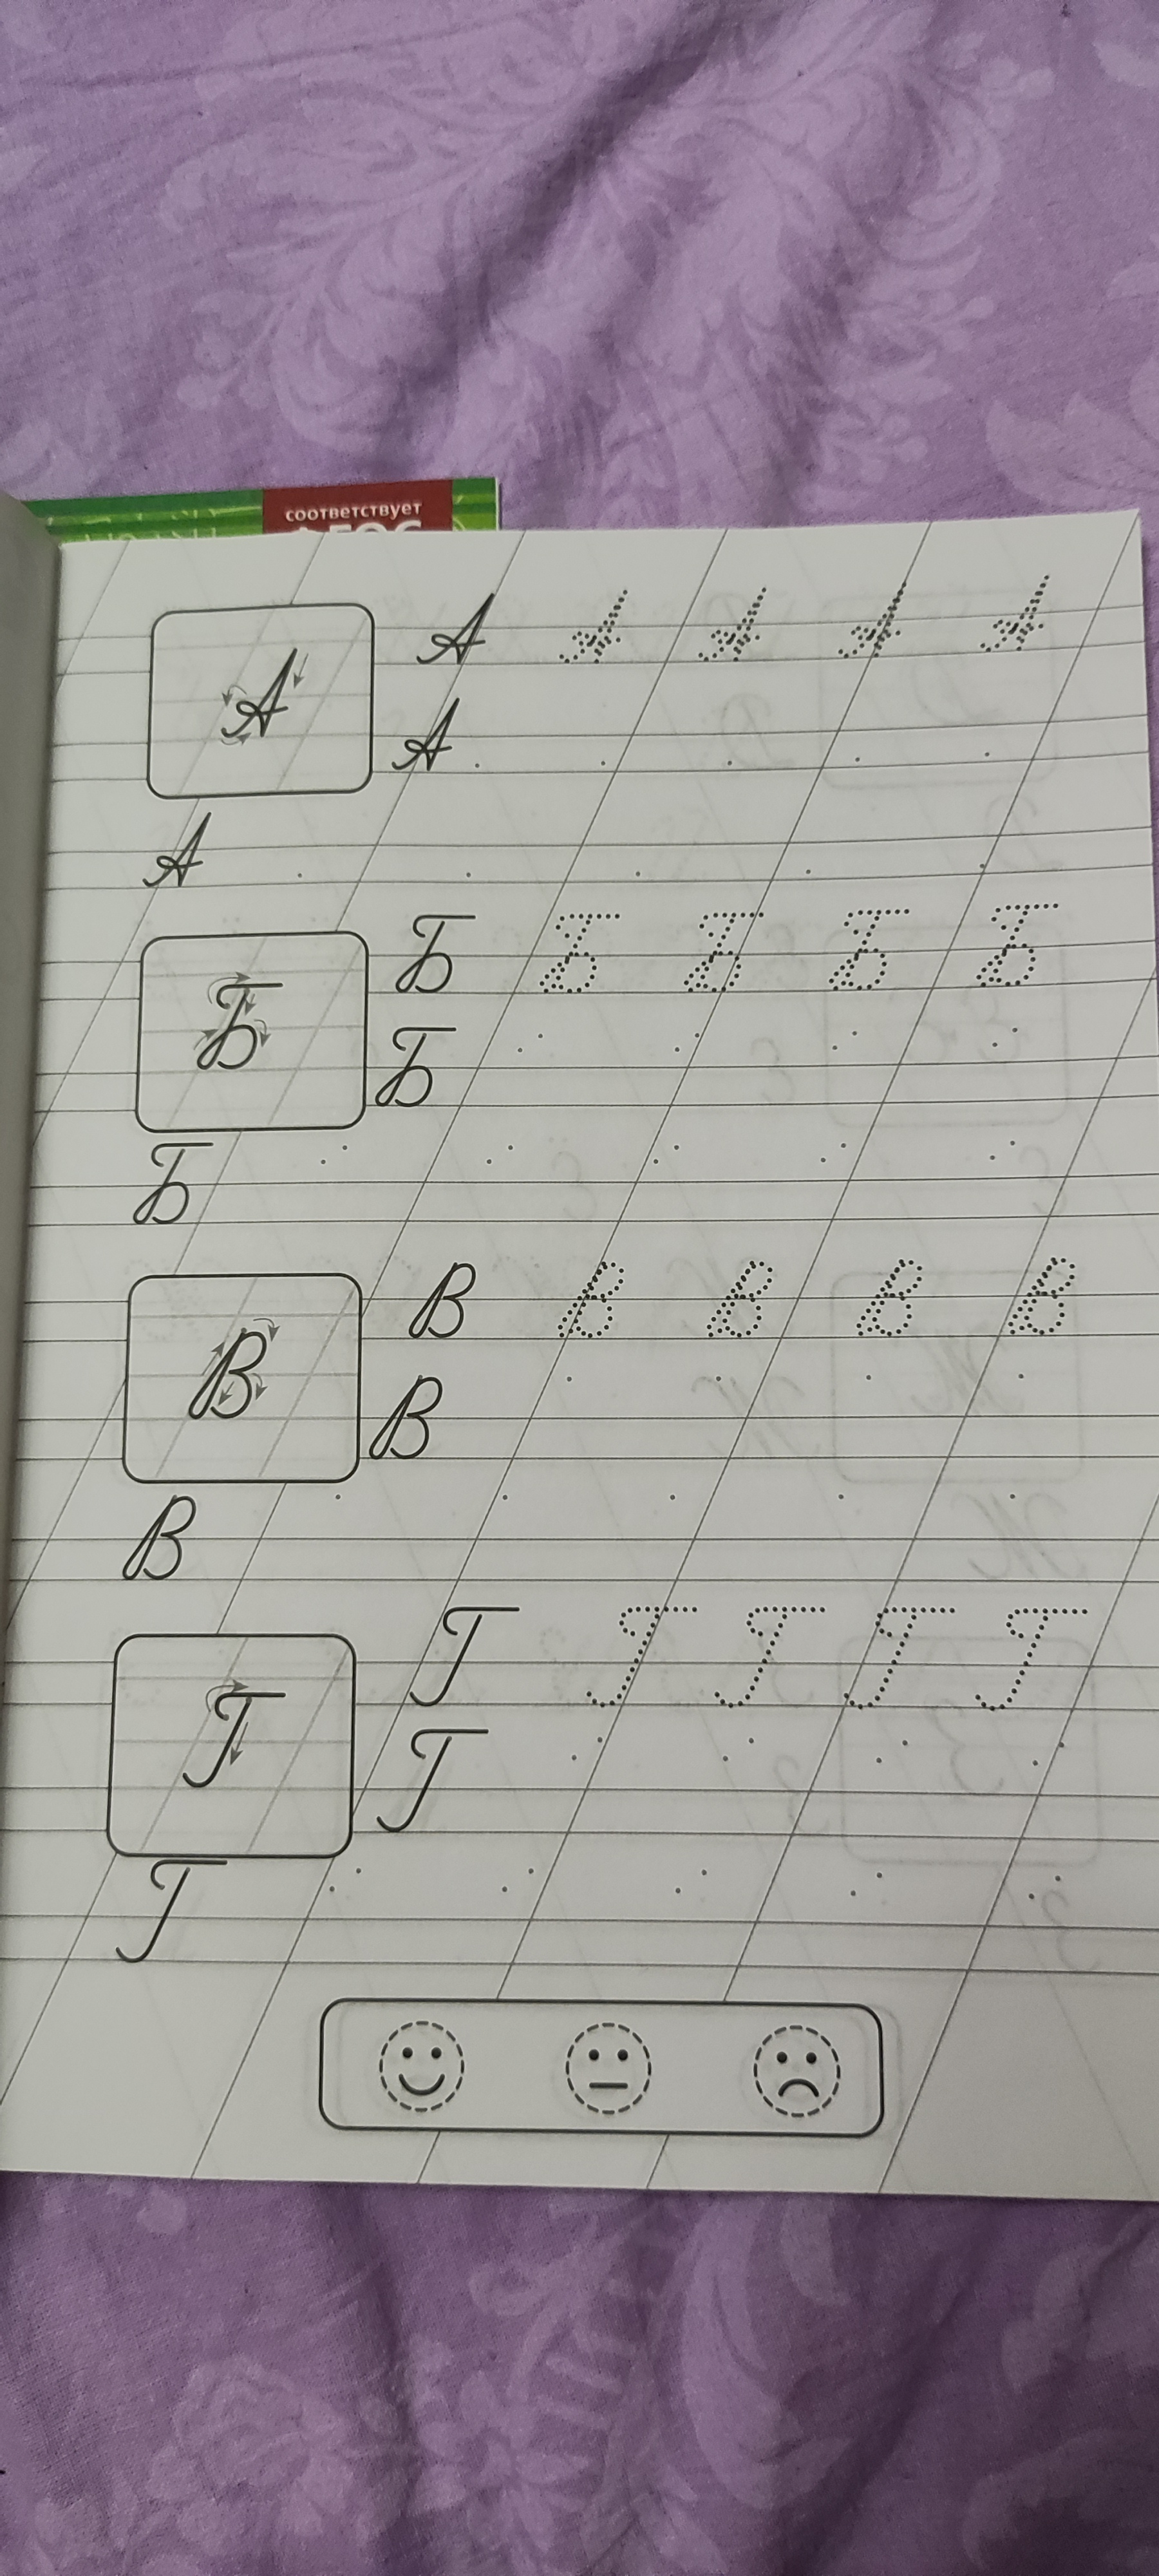 соответствует
ФГОС
А А А А А А
А
А
Б Б Б Б Б Б
Б
Б
В В В В В В
В
В
Г Г Г Г Г Г
Г
Г